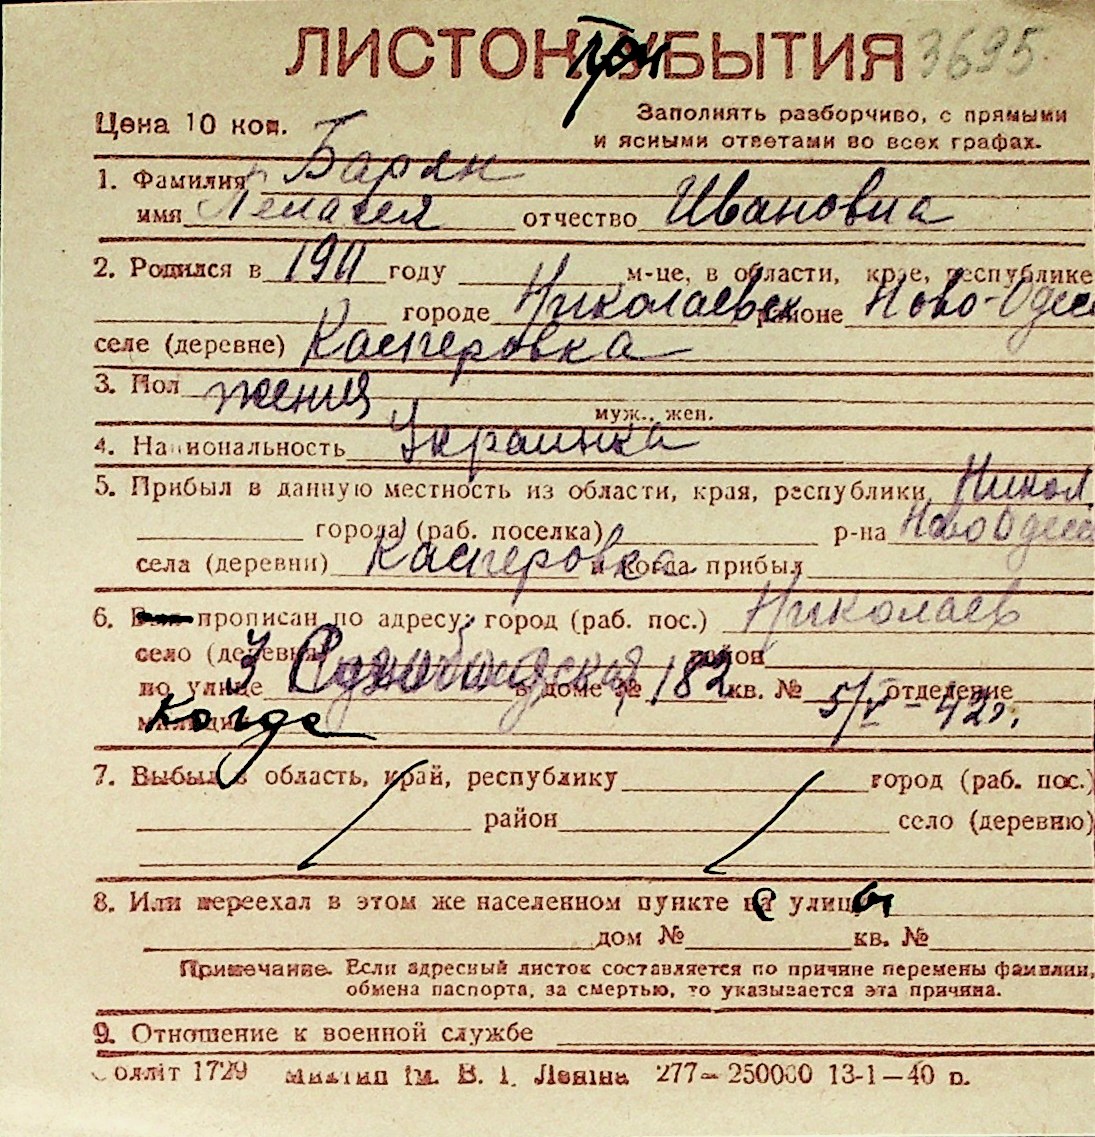 ЛИСТОК при УБЫТИЯ 3695.
Цена 10 коп.
Заполнять разборчиво, с прямыми
и ясными ответами во всех графах.
1. Фамилия Барян
имя Пелагея отчество Ивановна
2. Родился в 1911 году м-це, в области, крае, республике
городе Николаевск районе Ново-Одес
селе (деревне) Касперовка
3. Пол жения
муж., жен.
4. Национальность Украинка
5. Прибыл в данную местность из области, края, республики Никол
города (раб. поселка) р-на Ново Одеса
села (деревни) Касперовка и когда прибыл
6. прописан по адресу: город (раб. пос.) Николаев
село (деревня) район
по улице 3 Слободская в доме № 182 кв. № 5/V-42г. отделение
милиции когда
7. Выбыл в область, край, республику город (раб. пос.)
район село (деревню)
8. Или переехал в этом же населенном пункте с улицы
дом № кв. №
Примечание. Если адресный листок составляется по причине перемены фамилии,
обмена паспорта, за смертью, то указывается эта причина.
9. Отношение к военной службе
олліт 1729 Миктип ім. В. І. Леніна 277—250000 13-1—40 р.